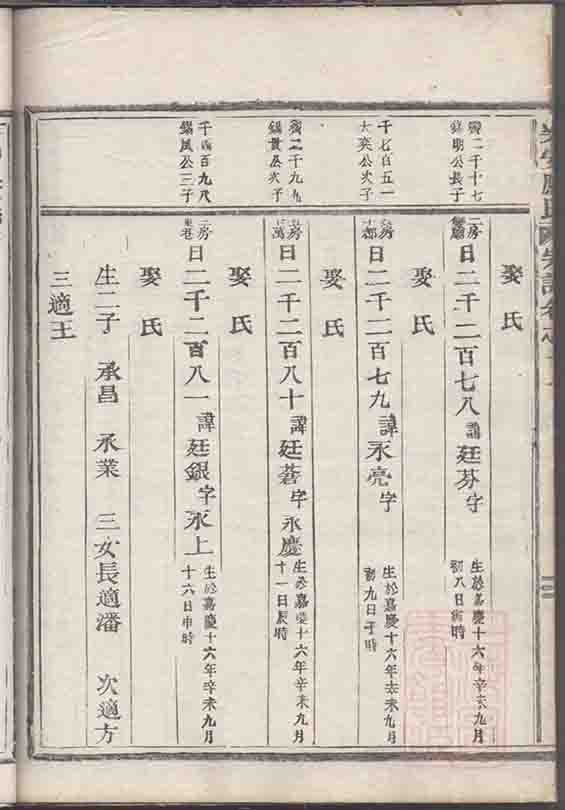 娶氏
第二千十七
錦明公長子
二房
日二千二百七八 諱廷芬字
生於嘉慶十六年辛未九月
初八日 時
娶氏
千七百五一
大奕公次子
房
日二千二百七九 諱永亮字
生於嘉慶十六年辛未九月
初九日子時
娶氏
二千九九
錫貴公次子
房
日二千二百八十 諱廷蒼字永慶
生於嘉慶十六年辛未九月
十一日辰時
娶氏
千四百九八
錫鳳公三子
二房
日二千二百八一 諱廷銀字永上
生於嘉慶十六年辛未九月
十六日申時
娶氏
生二子 承昌 承業 三女長適潘 次適方
三適王